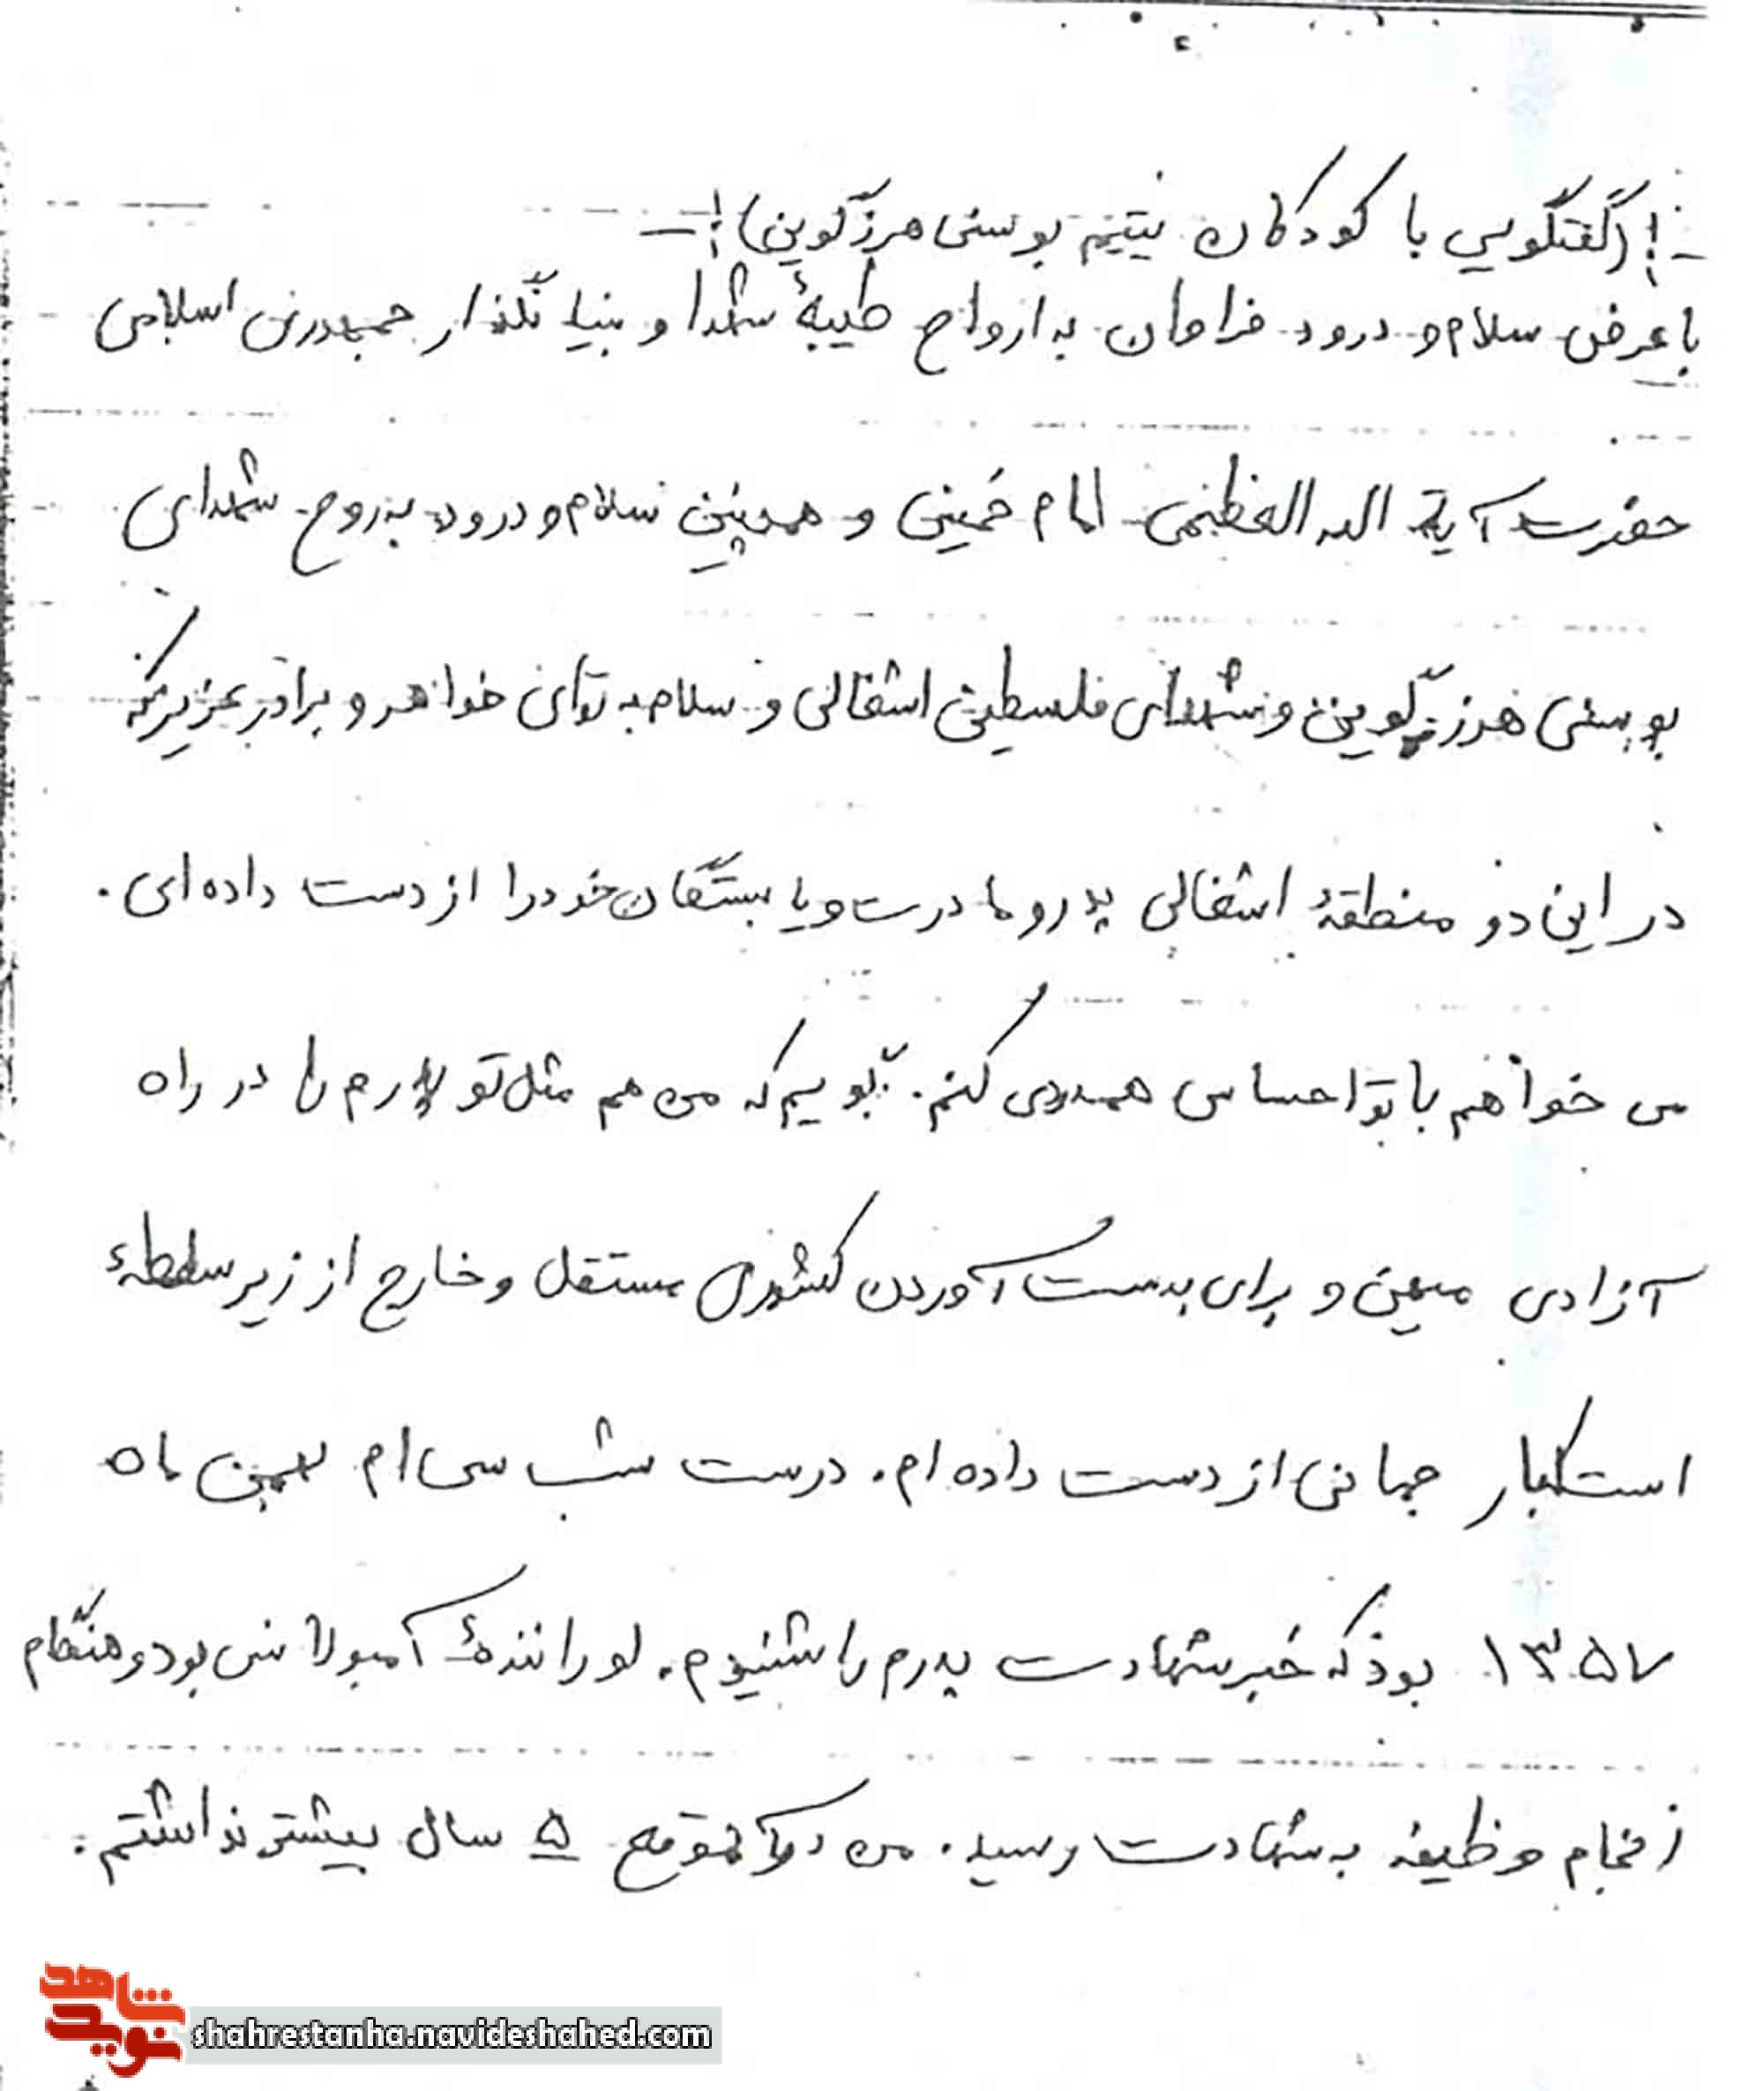 -:!(گفتگویی با کودکان یتیم بوسنی هرزگوین)!:-
با عرض سلام و درود فراوان به ارواح طیبهٔ شهدا و بنیانگذار جمهوری اسلامی
حضرت آیة الله العظمی امام خمینی و همچنین سلام و درود به روح شهدای
بوسنی هرزگوین و شهدای فلسطین اشغالی و سلام به تو ای خواهر و برادر عزیز که
در این دو منطقهٔ اشغالی پدر و مادرت و یا بستگان خود را از دست داده ای.
می خواهم با تو احساس همدردی کنم. بگویم که من هم مثل تو پدرم را در راه
آزادی میهن و برای بدست آوردن کشوری مستقل و خارج از زیر سلطهٔ
استکبار جهانی از دست داده ام. درست شب سی ام بهمن ماه
۱۳۵۷ بود که خبر شهادت پدرم را شنیدم. او رانندهٔ آمبولانس بود و هنگام
انجام وظیفه به شهادت رسید. من در آنموقع ۵ سال بیشتر نداشتم.
نوید شاهد
shahrestanha.navideshahed.com